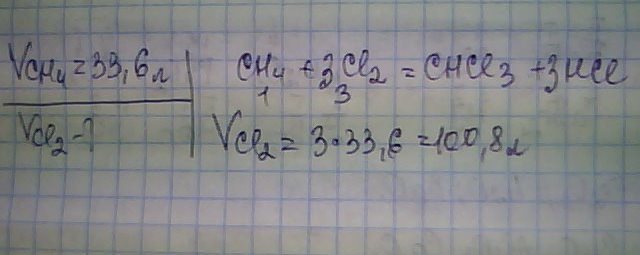 VCH4 = 33,6 л
VCl2 - ?
CH4 + 3Cl2 = CHCl3 + 3HCl
1 3
VCl2 = 3·33,6 = 100,8 л